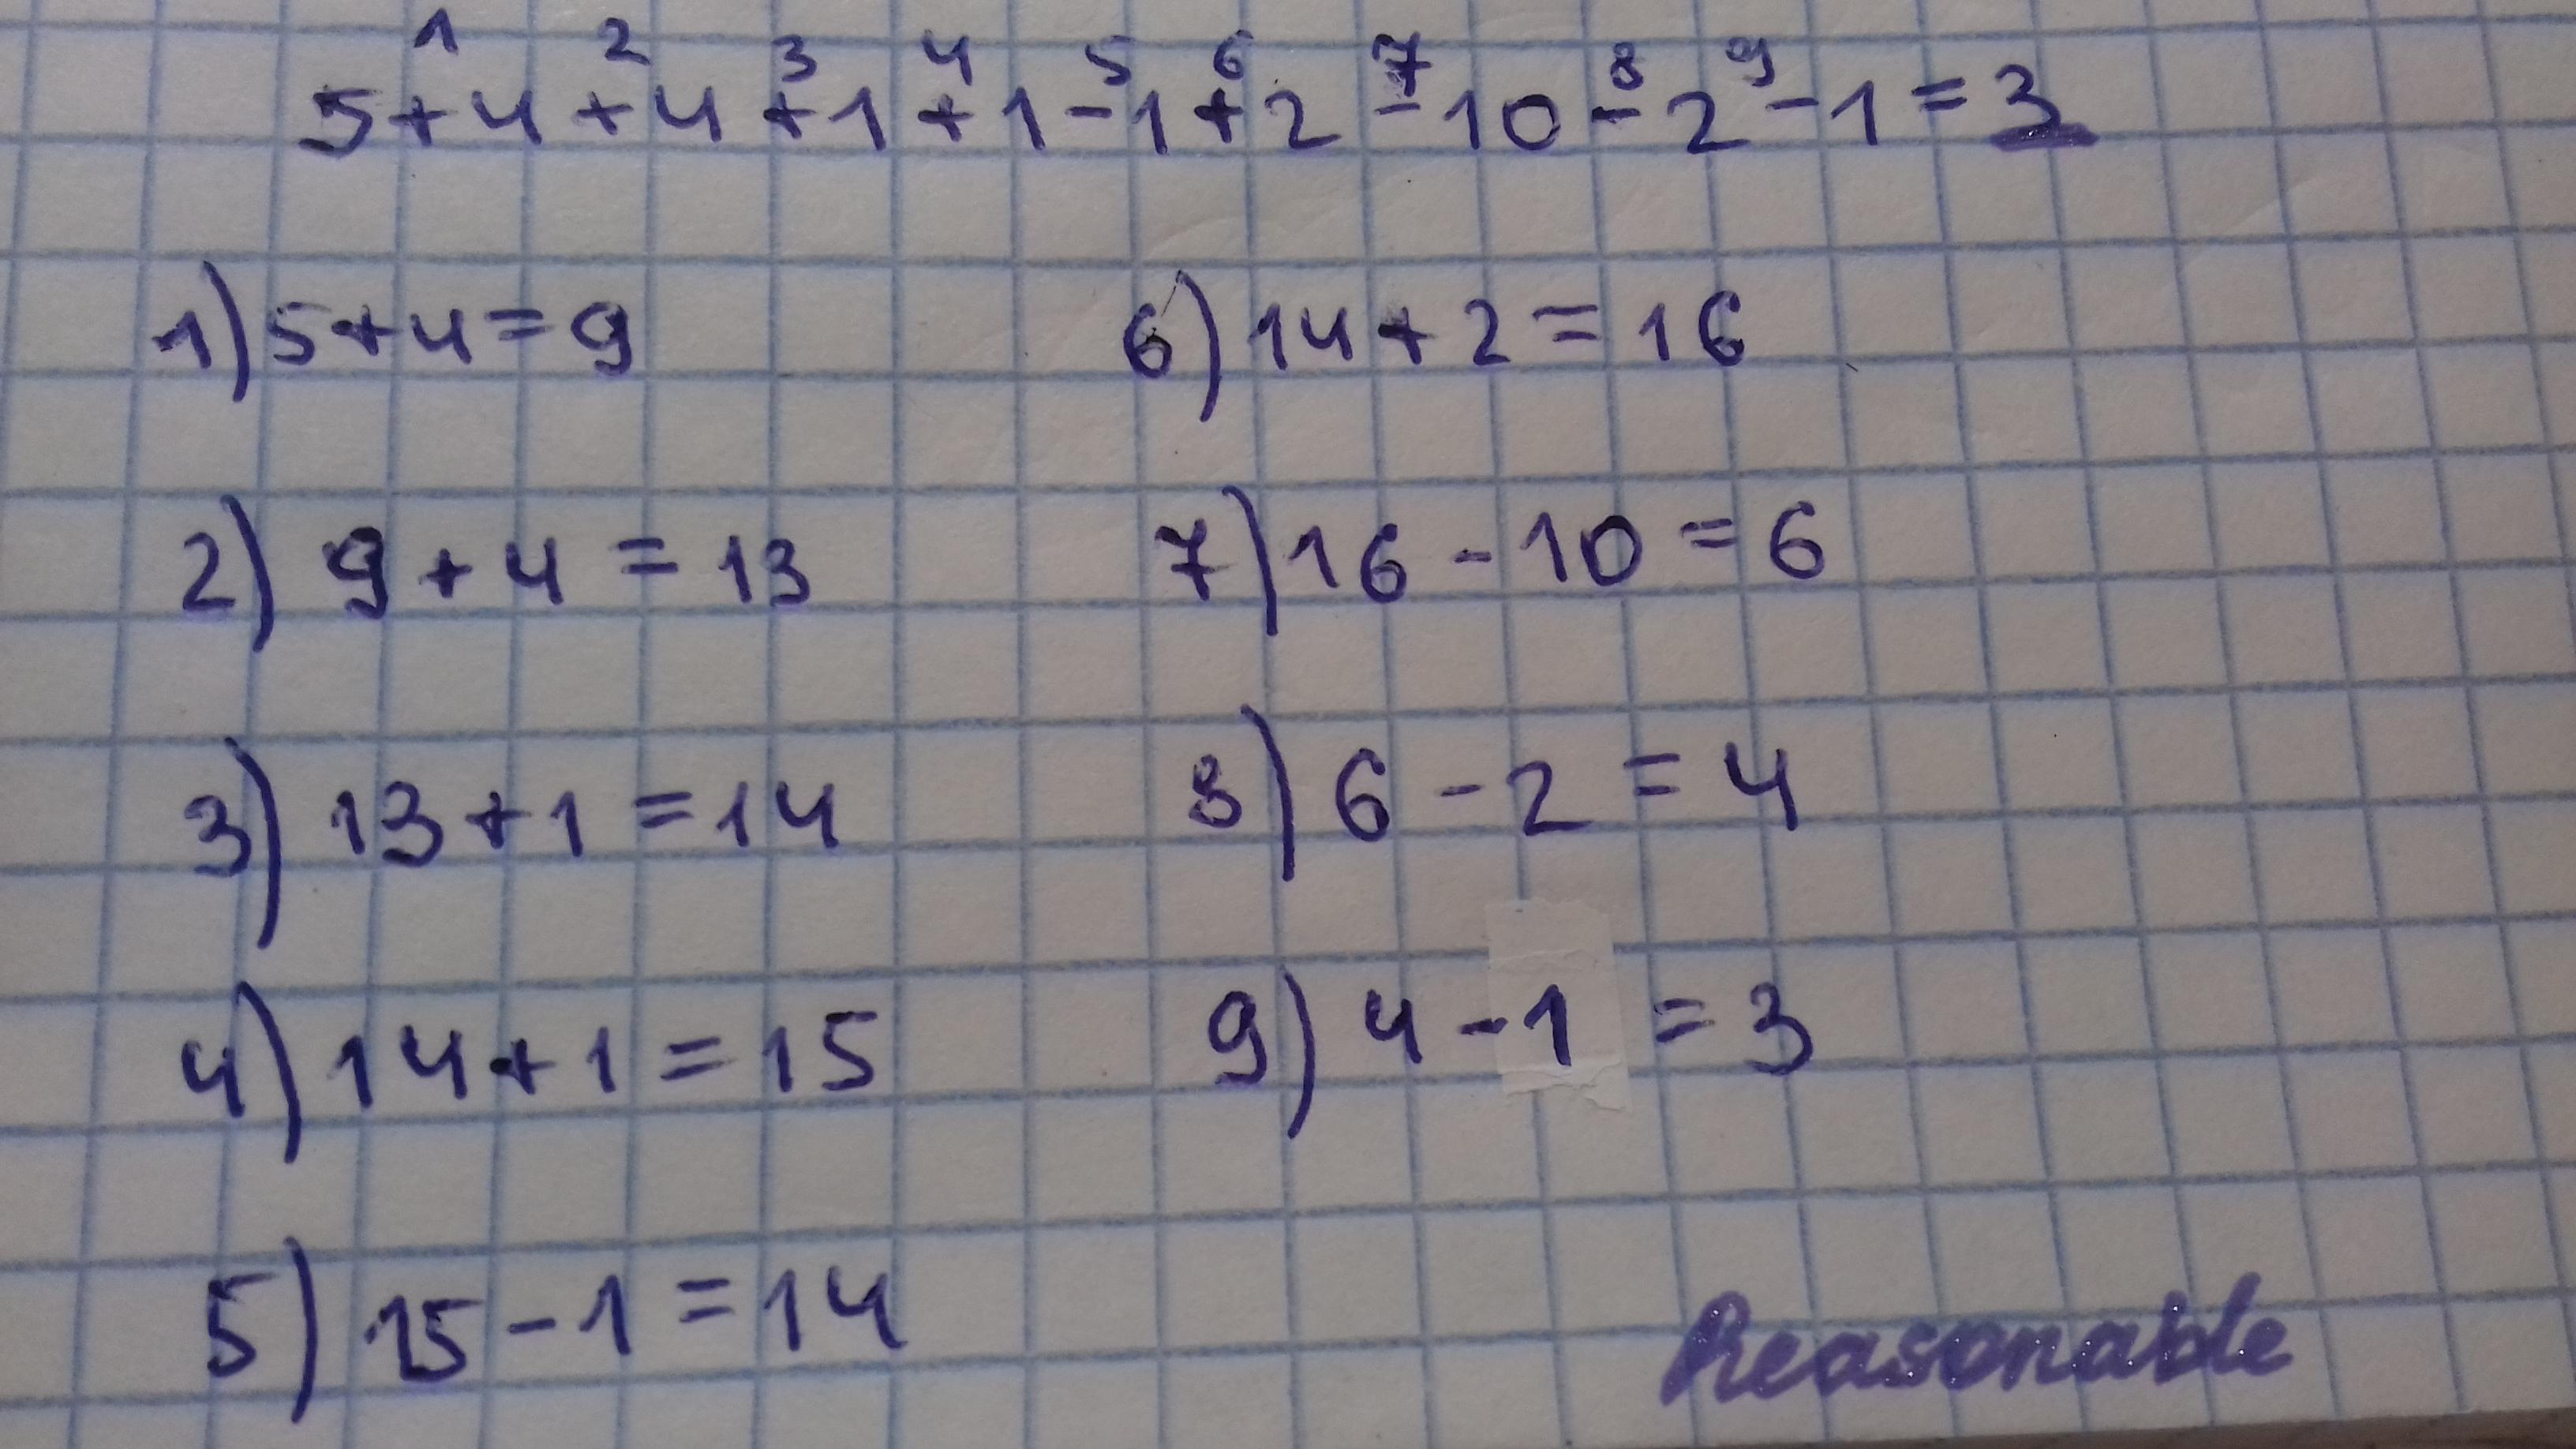 1 2 3 4 5 6 7 8 9
5+4+4+1+1-1+2-10-2-1=3
1) 5+4=9
2) 9+4=13
3) 13+1=14
4) 14+1=15
5) 15-1=14
6) 14+2=16
7) 16-10=6
8) 6-2=4
9) 4-1=3
Reasonable